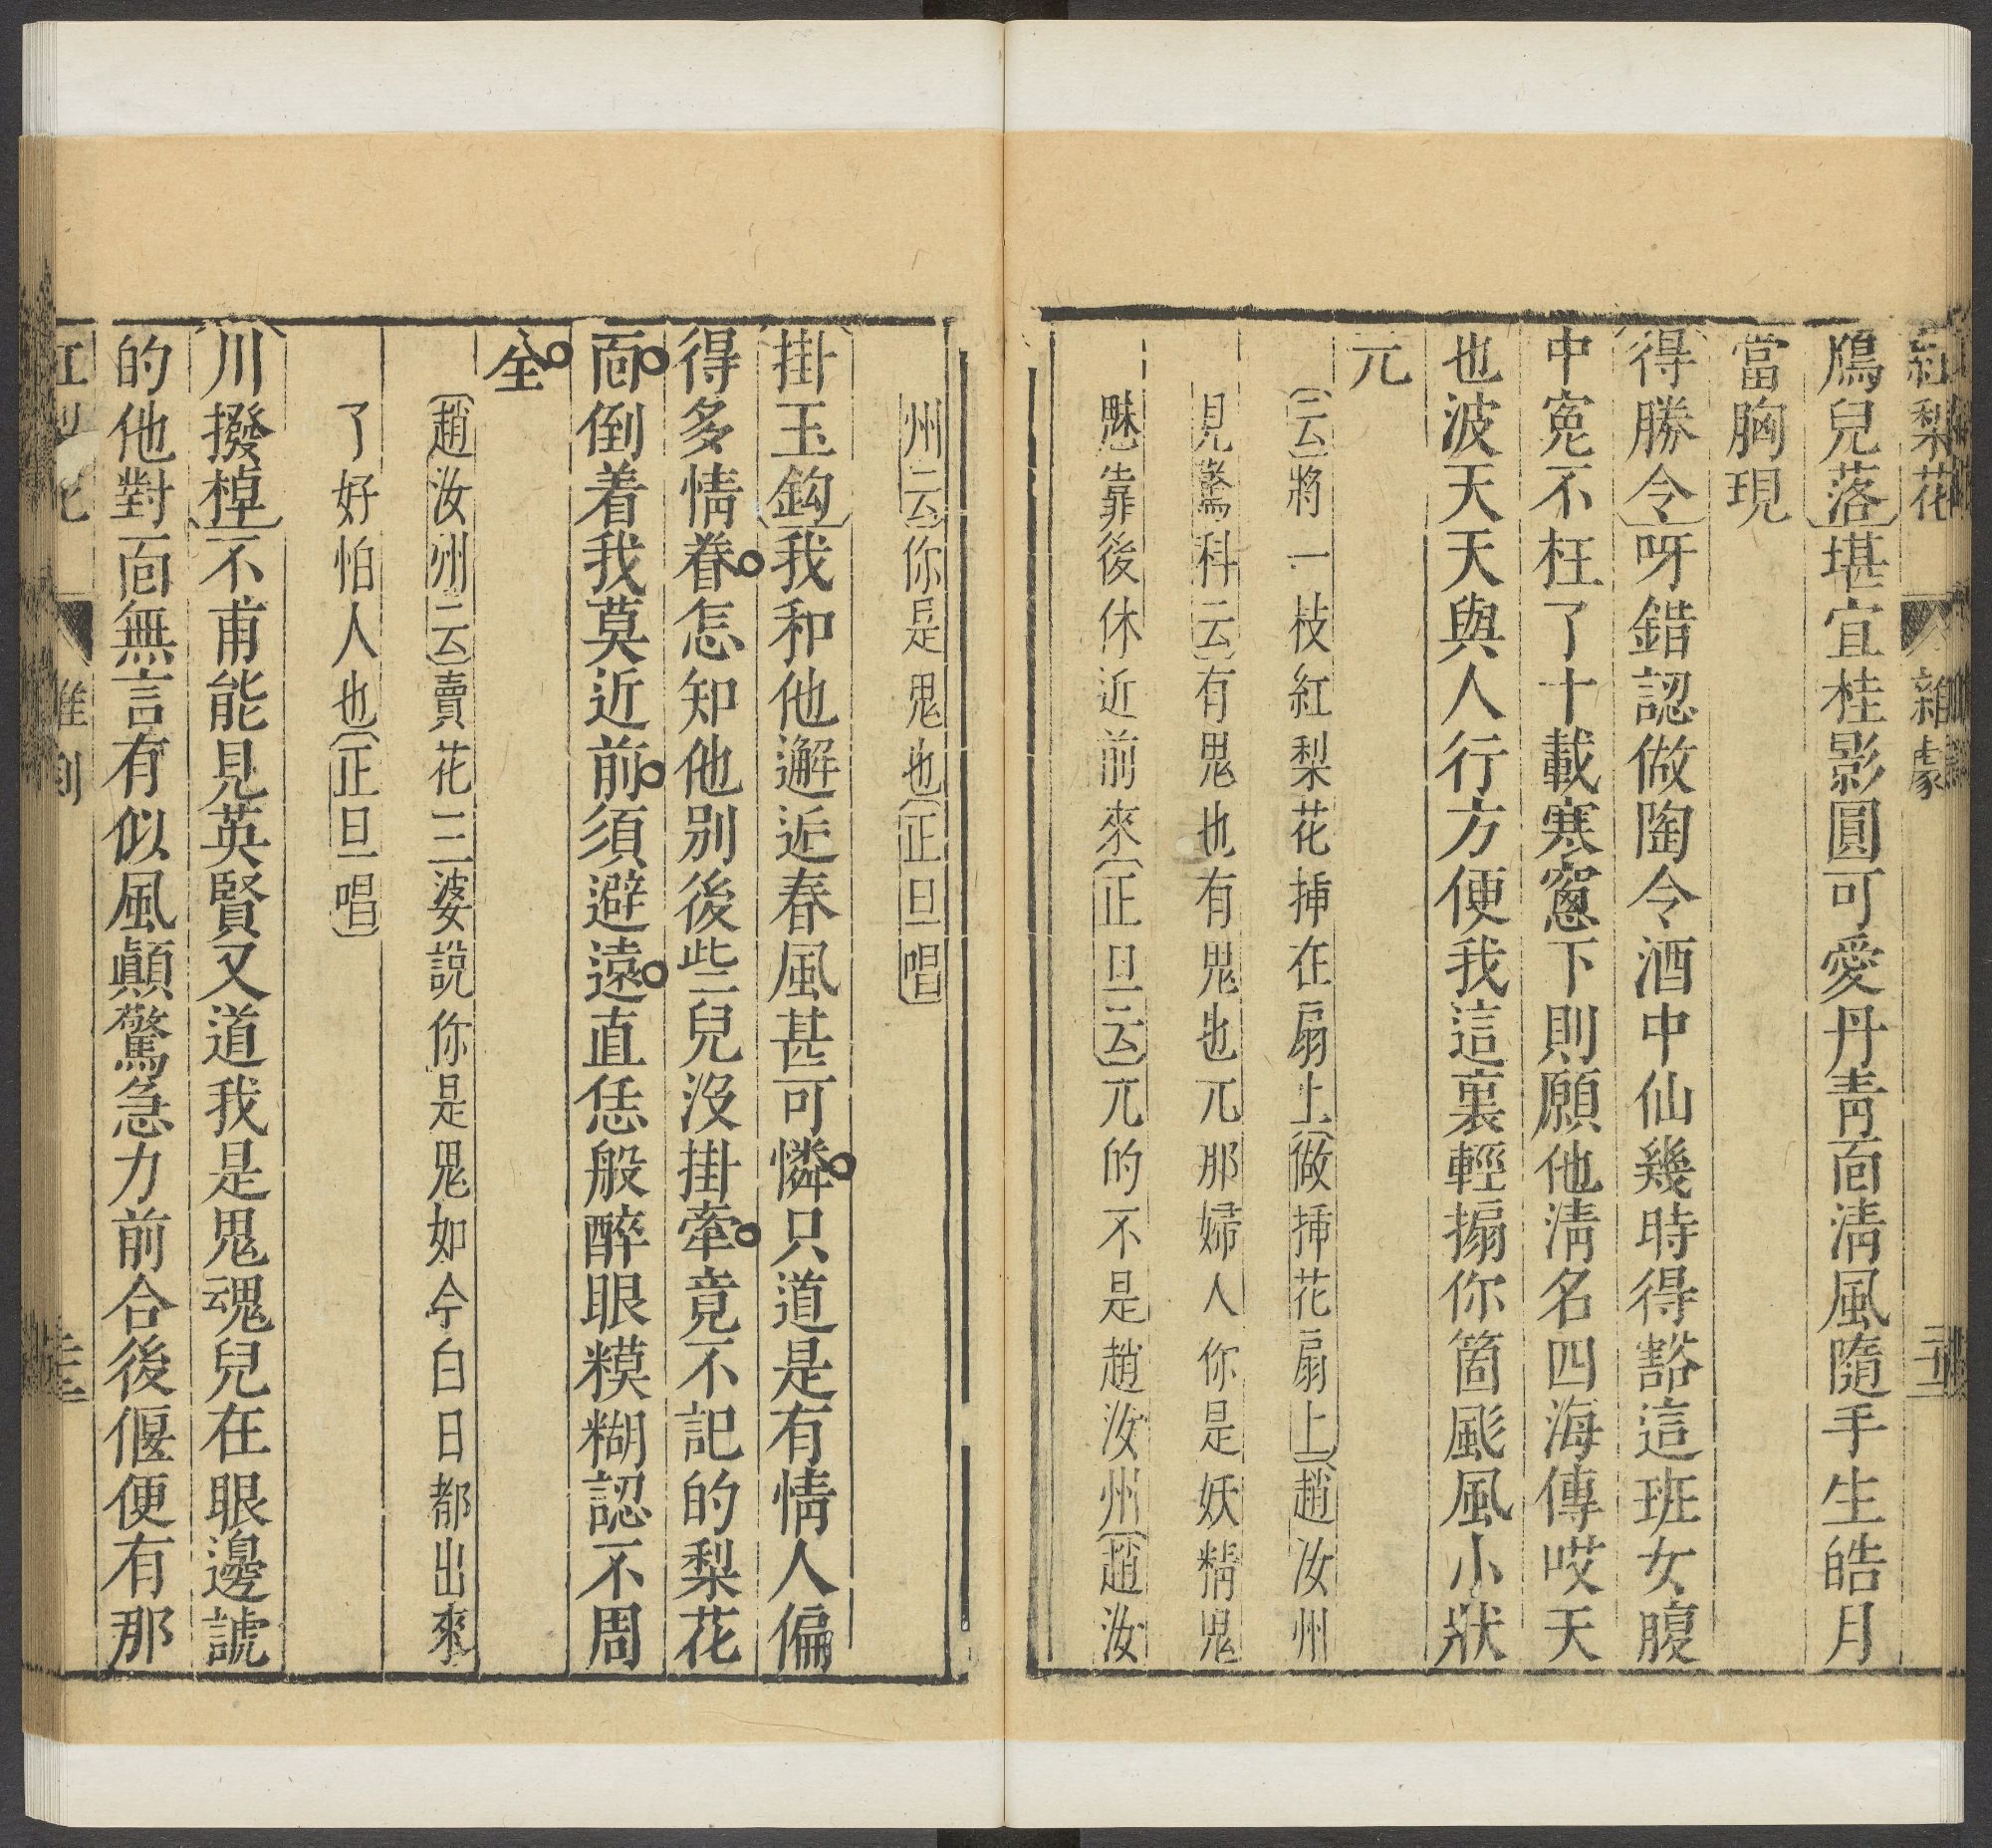 紅梨花　雜劇
鴈兒落〕堪宜桂影圓可愛丹靑靣淸風隨手生皓月
當胸現
〔得勝令〕呀錯認做陶令酒中仙幾時得豁這班女腹
中寃不枉了十載寒窻下則願他淸名四海傳哎天
也波天天與人行方便我這裏輕搧你箇颩風小狀
元
〔云〕將一枝紅梨花揷在扇上〔做揷花扇上〕〔趙汝州
見驚科云〕有鬼也有鬼也兀那婦人你是妖精鬼
魅靠後休近前來〔正旦云〕兀的不是趙汝州〔趙汝
州云〕你是鬼也〔正旦唱〕
〔掛玉鈎〕我和他邂逅春風甚可憐只道是有情人偏
得多情眷怎知他别後些兒沒掛牽竟不記的梨花
靣倒着我莫近前須避遠直恁般醉眼糢糊認不周
全
〔趙汝州云〕賣花三婆說你是鬼如今白日都出來
了好怕人也〔正旦唱〕
〔川撥棹〕不甫能見英賢又道我是鬼魂兒在眼邊諕
的他對靣無言有似風顚驚急力前合後偃便有那